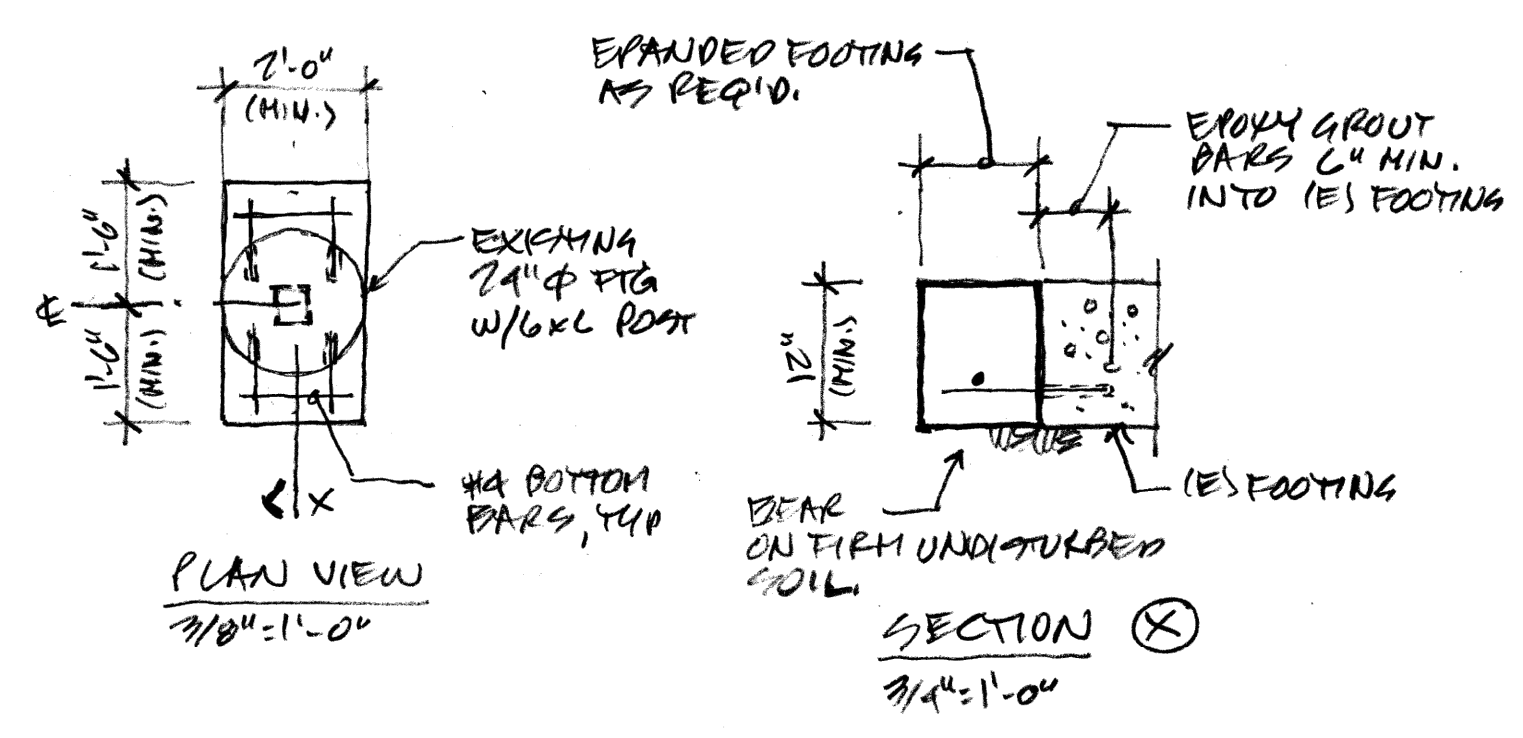 2'-0"
(MIN.)
1'-6"
(MIN.)
℄
1'-6"
(MIN.)
EXISTING
24"ϕ FTG
W/6x6 POST
#4 BOTTOM
BARS, TYP
X
PLAN VIEW
3/8"=1'-0"
EPANDED FOOTING
AS REQ'D.
EPOXY GROUT
BARS 6" MIN.
INTO (E) FOOTING
12"
(MIN.)
(E) FOOTING
BEAR
ON FIRM UNDISTURBED
SOIL.
SECTION X
3/4"=1'-0"